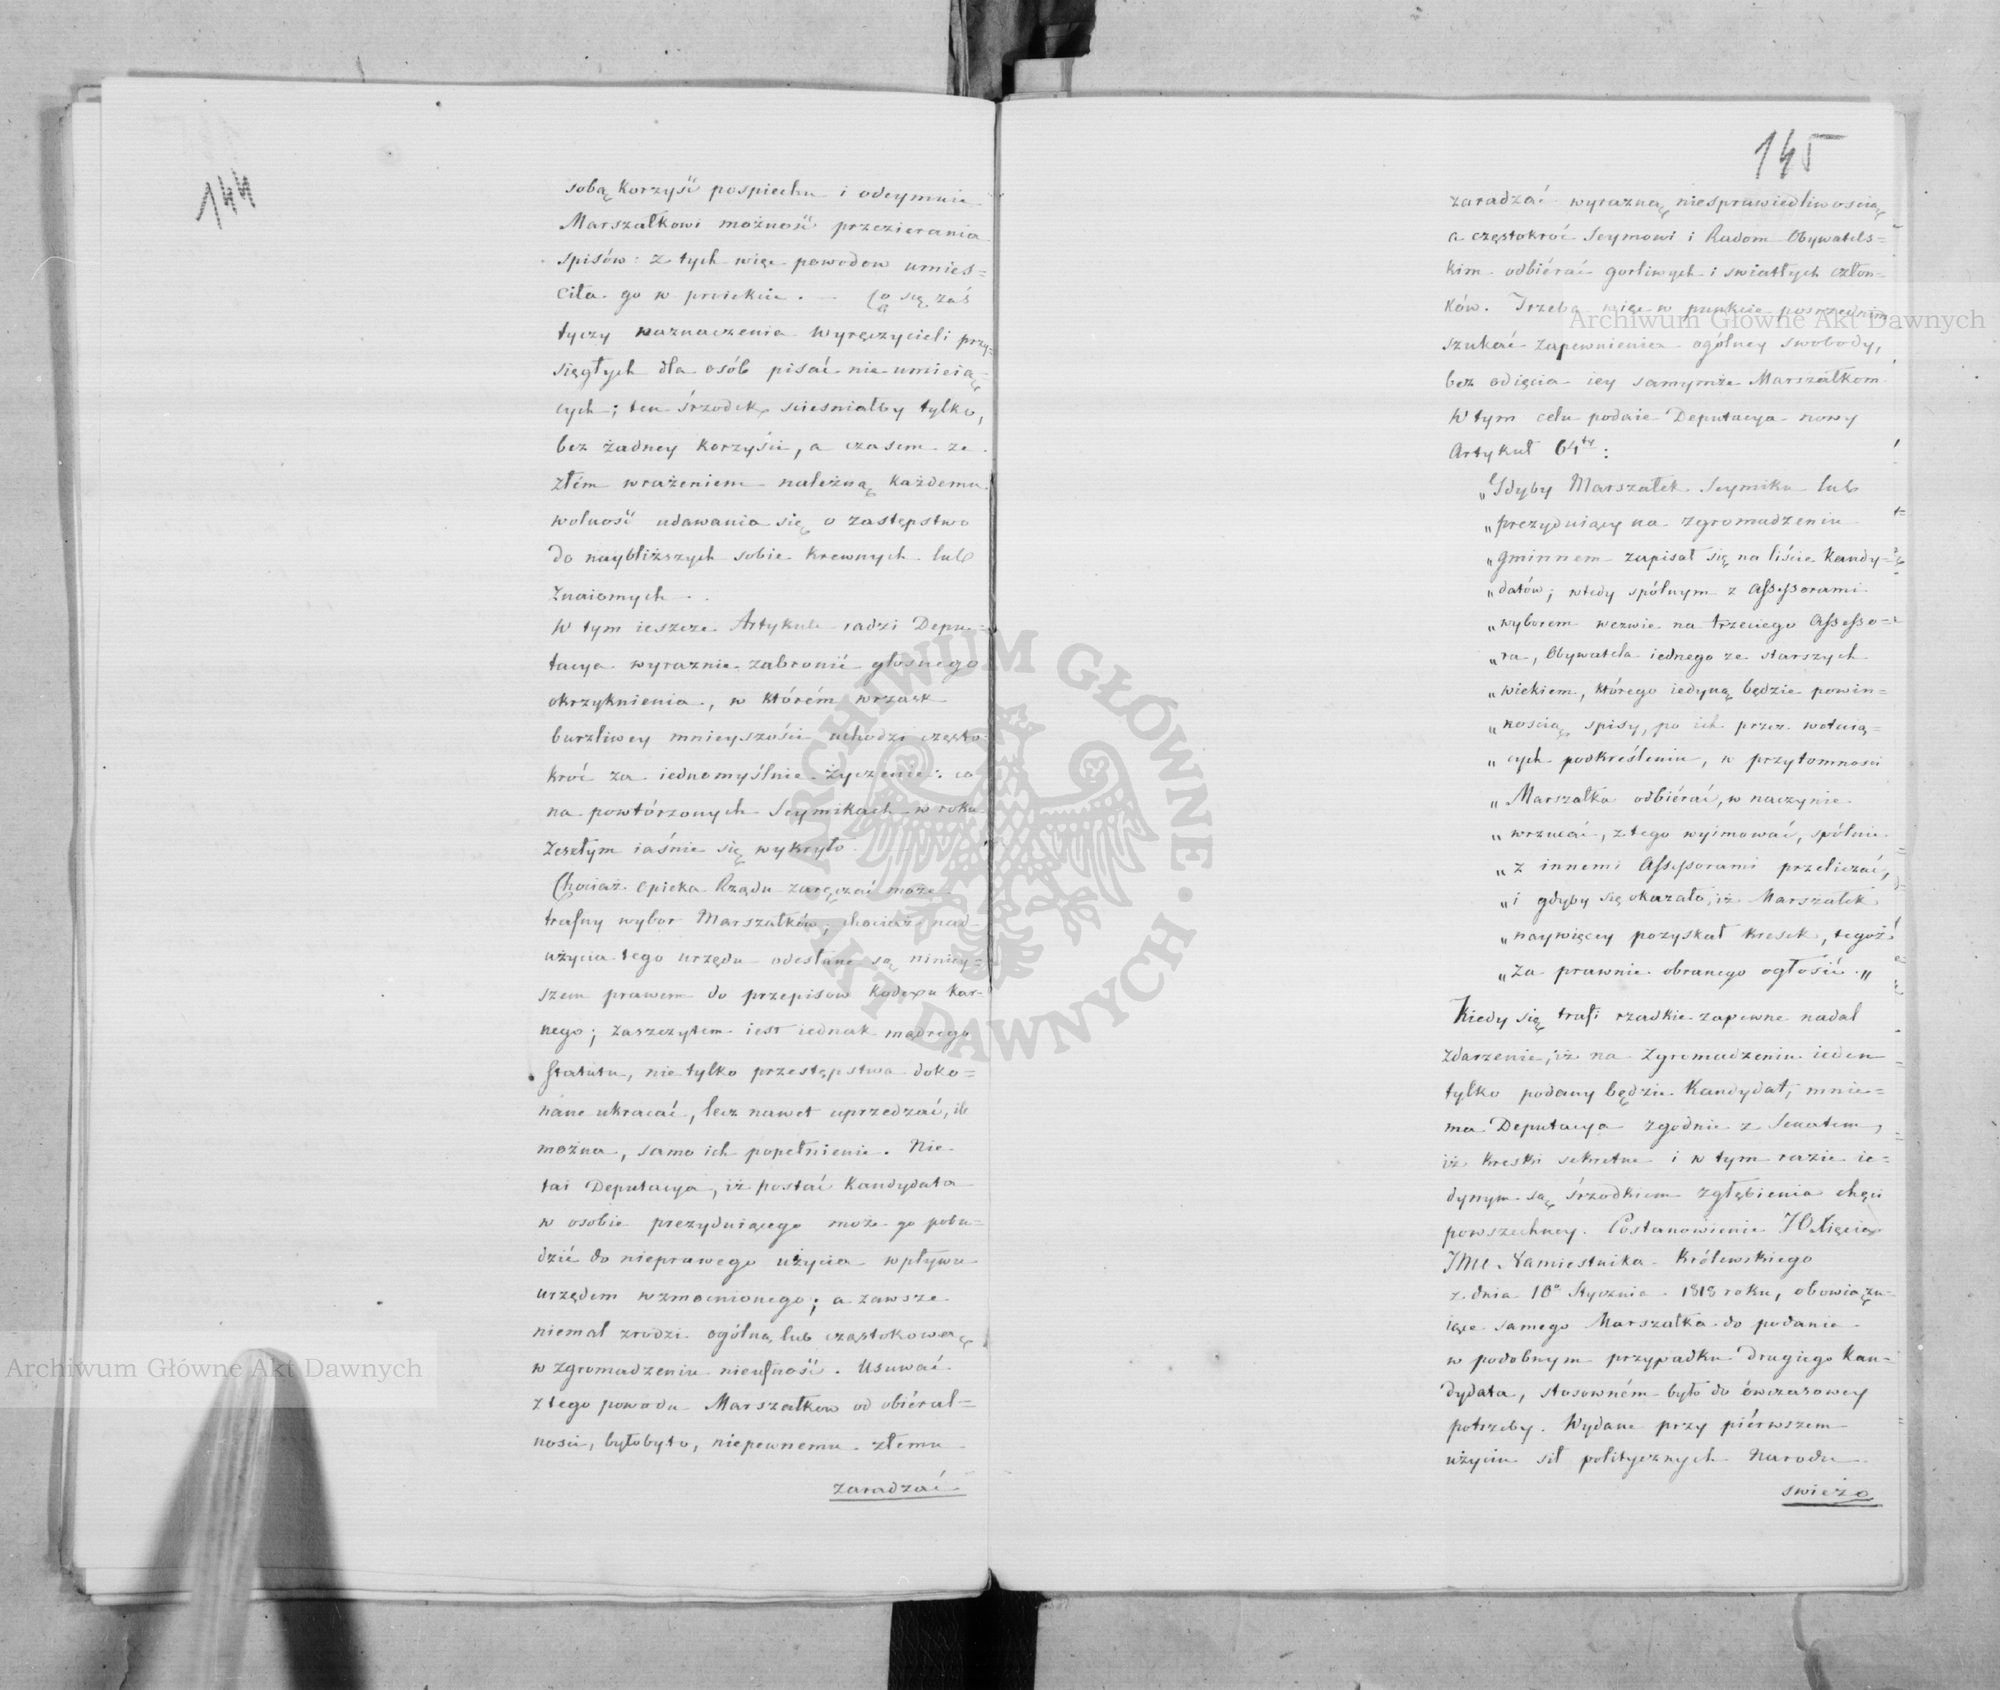 144
sobą korzyść pospiechu i odeymuie
Marszałkowi możność przezierania
spisów: z tych więc powodow umieś=
ciła go w proiekcie. — Co się zaś
tyczy naznaczenia wyręczycieli przy=
sięgłych dla osób pisać nie umieią=
cych; ten śrzodek scieśniałby tylko,
bez żadney korzyści, a czasem ze
złém wrażeniem należną każdemu
wolność udawania się o zastępstwo
do naybliższych sobie krewnych lub
znaiomych.
W tym ieszcze Artykule radzi Depu=
tacya wyraznie zabronić głosnego
okrzyknienia, w którém wrzask
burzliwey mnieyszości uchodzi często=
kroć za iednomyślnie życzenie: co
na powtórzonych Seymikach w roku
zeszłym iaśnie się wykryło.
Chociaż opieka Rządu zaręczać może
trafny wybor Marszałków, chociaż nad=
użycia tego urzędu odesłane są niniey=
szem prawem do przepisow Kodexu Kar=
nego; zaszczytem iest iednak mądrego
Statutu, nie tylko przestępstwa doko=
nane ukracać, lecz nawet uprzedzać, ile
można, samo ich popełnienie. Nie
tai Deputacya, iż postać Kandydata
w osobie prezyduiącego może go pobu=
dzić do nieprawego użycia wpływu
urzędem wzmocnionego; a zawsze
niemal zrodzi ogólną lub cząstokową
w zgromadzeniu nieufność. Usuwać
z tego powodu Marszałkow od obiéral=
nosci, byłoby to, niepewnemu złemu
zaradzać
145
zaradzać wyrazną niesprawiedliwoscią
a częstokroć Seymowi i Radom Obywatels=
kim odbiérać gorliwych i swiatłych człon=
ków. Trzeba więc w punkcie posrzednim
szukać zapewnienia ogólney swobody,
bez odięcia iey samymże Marszałkom
W tym celu podaie Deputacya nowy
Artykuł 64ty:
„Gdyby Marszałek Seymiku lub
„prezyduiący na zgromadzeniu
„gminnem zapisał się na liście Kandy=
„datów; wtedy spólnym z Assessorami
„wyborem wezwie na trzeciego Assesso=
„ra, Obywatela iednego ze starszych
„wiekiem, którego iedyną będzie powin=
„noscią, spisy, po ich przez wotuią=
„cych podkreśleniu, w przytomnosci
„Marszałka odbiérać, w naczynie
„wrzucać, z tego wyimować, spólnie
„z innemi Assessorami przeliczać,
„i gdyby się okazało, iż Marszałek
„naywięcey pozyskał kresek, tegoż
„za prawnie obranego ogłosić.„
Kiedy się trafi rzadkie zapewne nadal
zdarzenie, iż na Zgromadzeniu ieden
tylko podany będzie Kandydat, mnie=
ma Deputacya zgodnie z Senatem,
iż kreski sekretne i w tym razie ie=
dynym są śrzodkiem zgłębienia chęci
powszechney. Postanowienie JO Xięcia
JMC Namiestnika Królewskiego
z dnia 10o Stycznia 1818 roku, obowiązu=
iące samego Marszałka do podania
w podobnym przypadku drugiego Kan=
dydata, stosowném było do ówczasowey
potrzeby. Wydane przy piérwszem
użyciu sił politycznych Narodu
swieżo
Archiwum Główne Akt Dawnych
Archiwum Główne Akt Dawnych
ARCHIWUM GŁÓWNE · AKT DAWNYCH ·